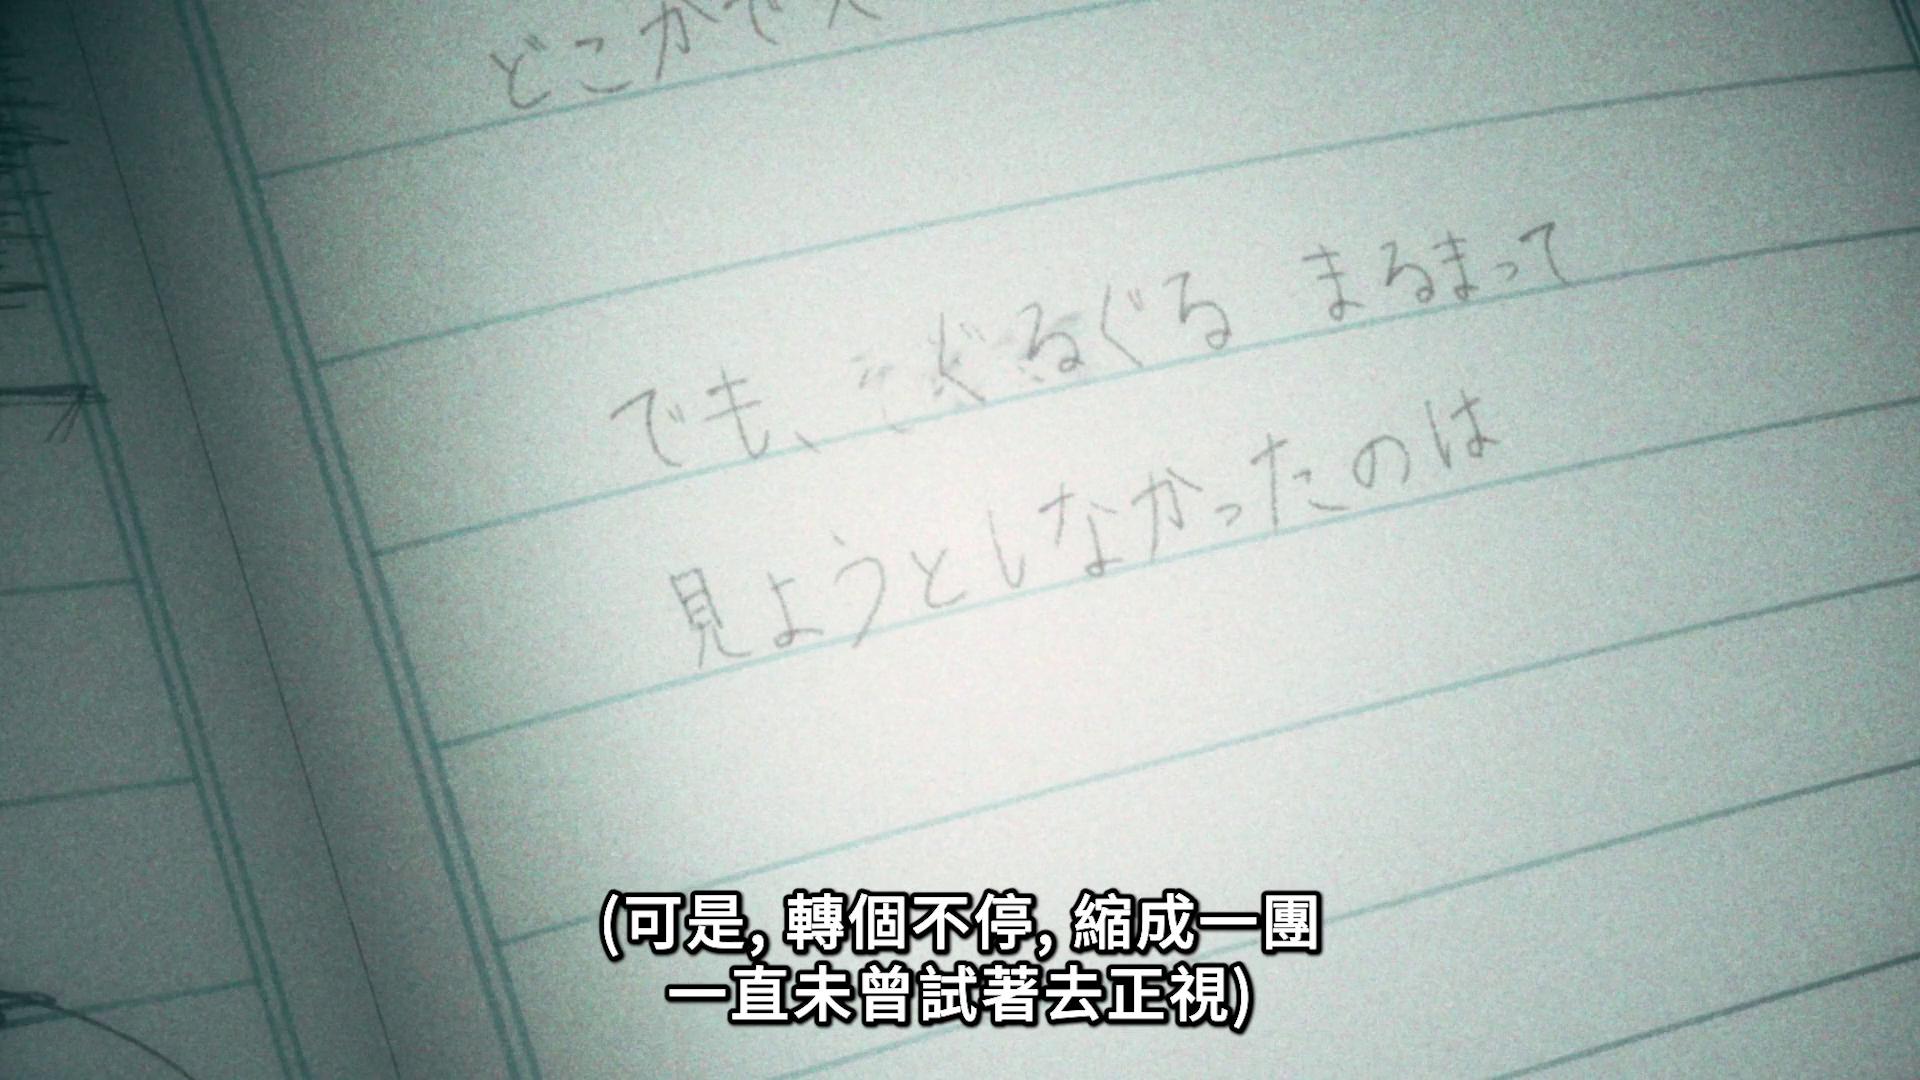 どこかで
でも、ぐるぐる まるまって
見ようとしなかったのは
(可是, 轉個不停, 縮成一團
一直未曾試著去正視)